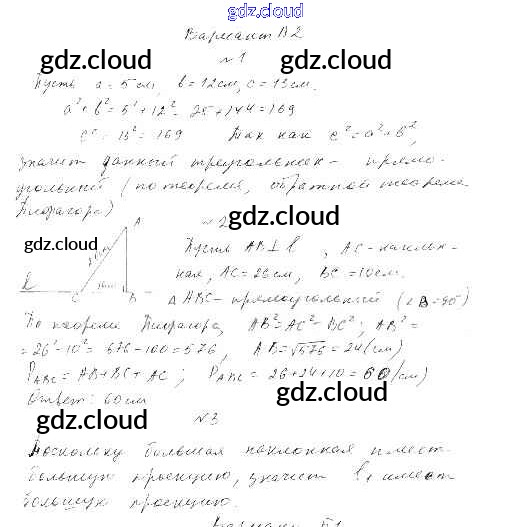 gdz.cloud
Вариант В2
gdz.cloud gdz.cloud
№1
Пусть a = 5 см, b = 12 см, c = 13 см.
a² + b² = 5² + 12² = 25 + 144 = 169
c² = 13² = 169 Так как c² = a² + b²,
gdz.cloud gdz.cloud
значит данный треугольник - прямо-
угольный (по теореме, обратной теореме
Пифагора)
A
№2
gdz.cloud
gdz.cloud
Пусть AB ⊥ l, AC - наклон-
ная, AC = 26 см, BC = 10 см.
l C B
△ABC - прямоугольный (∠B = 90°)
По теореме Пифагора, AB² = AC² - BC²; AB² =
= 26² - 10² = 676 - 100 = 576, AB = √576 = 24 (см)
P ABC = AB + BC + AC; P ABC = 26 + 24 + 10 = 60 (см)
gdz.cloud
Ответ: 60 см
gdz.cloud
№3
Поскольку большая наклонная имеет
gdz.cloud gdz.cloud
большую проекцию, значит l₁ имеет
большую проекцию.
Вариант Б1